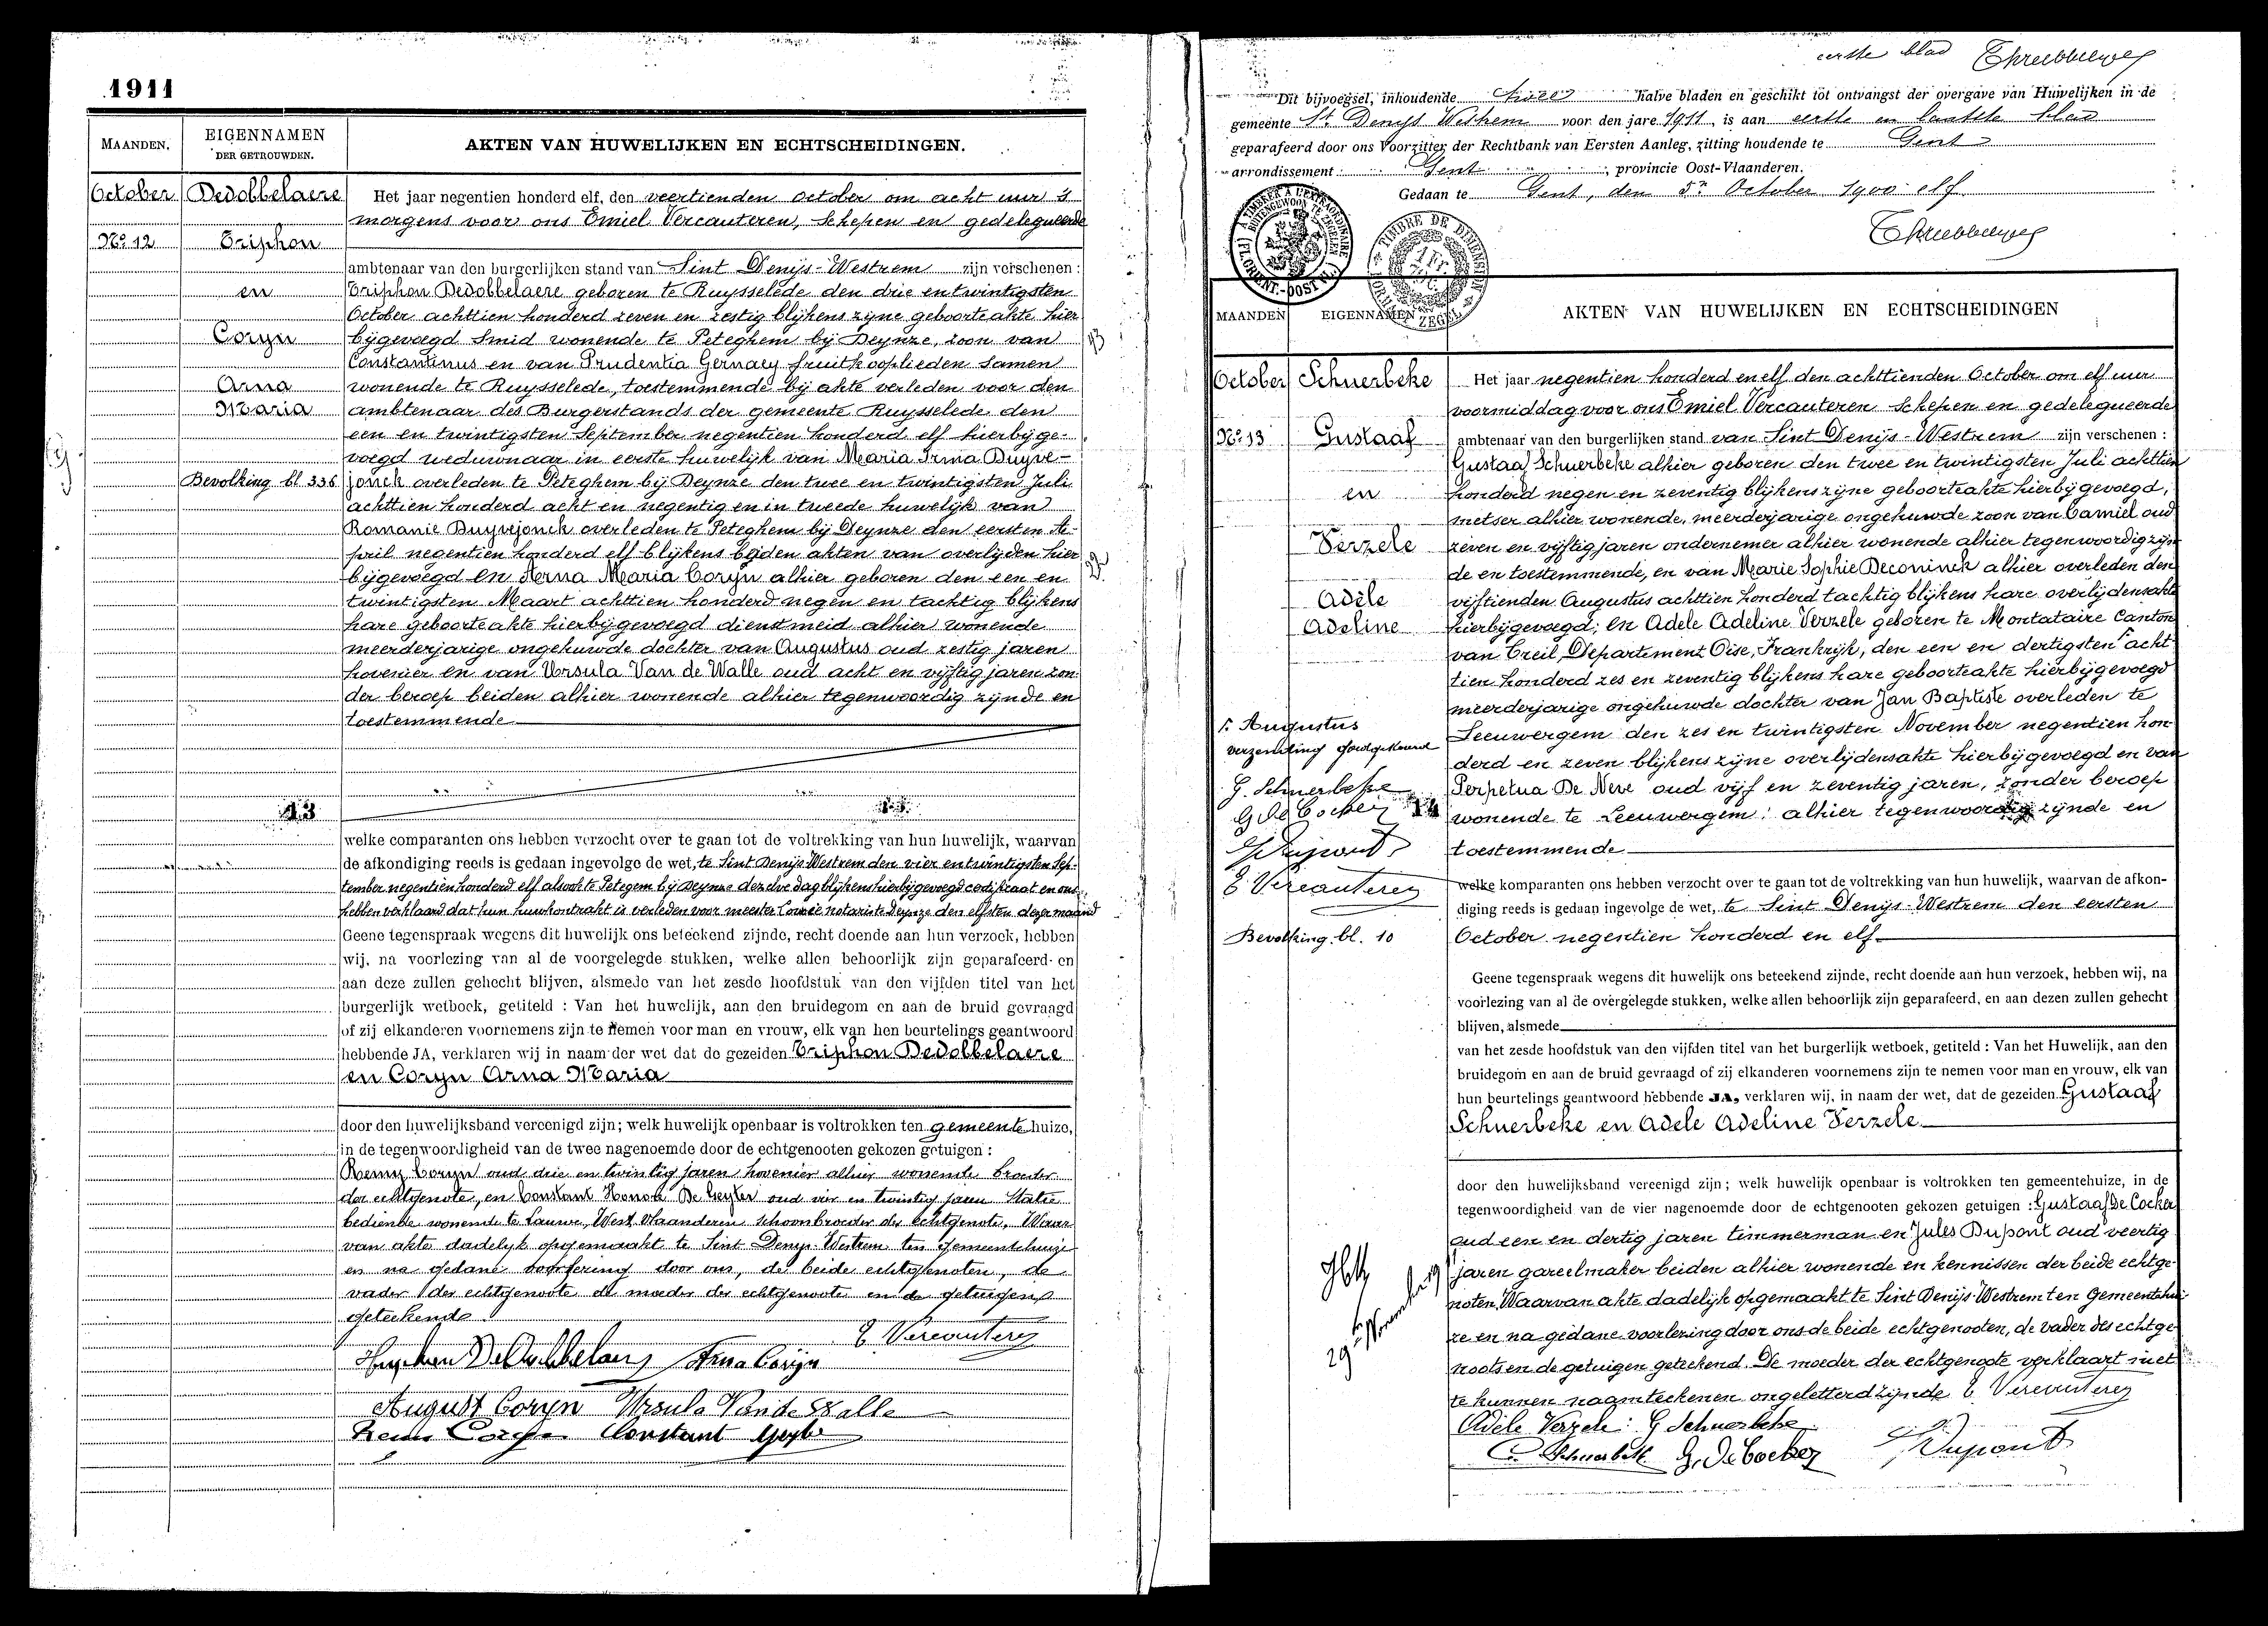 1911
MAANDEN.
EIGENNAMEN
DER GETROUWDEN.
AKTEN VAN HUWELIJKEN EN ECHTSCHEIDINGEN.
October
Dedobbelaere
No 12
Triphon
en
Coryn
Arna
Maria
Bevolking bl 336
Het jaar negentien honderd elf, den veertienden October om acht uur 's
morgens voor ons Emiel Vercauteren, schepen en gedelegueerde
ambtenaar van den burgerlijken stand van Sint Denijs-Westrem zijn verschenen:
Triphon Dedobbelaere geboren te Ruysselede den drie en twintigsten
October achttien honderd zeven en zestig blijkens zijne geboorteakte hier
bijgevoegd smid wonende te Peteghem bij Deynze, zoon van
Constantinus en van Prudentia Gernaey fruitkooplieden samen
wonende te Ruysselede, toestemmende bij akte verleden voor den
ambtenaar des Burgerstands der gemeente Ruysselede den
een en twintigsten September negentien honderd elf hierbijge-
voegd weduwnaar in eerste huwelijk van Maria Irma Duyve-
jonck overleden te Peteghem bij Deynze den twee en twintigsten Juli
achttien honderd acht en negentig en in tweede huwelijk van
Romanie Duyvejonck overleden te Peteghem bij Deynze den eersten A-
pril negentien honderd elf blijkens beiden akten van overlijden hier
bijgevoegd en Arna Maria Coryn alhier geboren den een en
twintigsten Maart achttien honderd negen en tachtig blijkens
hare geboorteakte hierbijgevoegd dienstmeid alhier wonende
meerderjarige ongehuwde dochter van Augustus oud zestig jaren
hovenier en van Ursula Van de Walle oud acht en vijftig jaren zon-
der beroep beiden alhier wonende alhier tegenwoordig zijnde en
toestemmende
13
welke comparanten ons hebben verzocht over te gaan tot de voltrekking van hun huwelijk, waarvan
de afkondiging reeds is gedaan ingevolge de wet, te Sint Denijs-Westrem den vier en twintigsten Sep-
tember negentien honderd elf alsook te Petegem bij Deynze dezelve dag blijkens hierbijgevoegd certifikaat en ons
hebben verklaard dat hun huwkontrakt is verleden voor meester notaris te Deynze den elfsten dezer maand
Geene tegenspraak wegens dit huwelijk ons beteekend zijnde, recht doende aan hun verzoek, hebben
wij, na voorlezing van al de voorgelegde stukken, welke allen behoorlijk zijn geparafeerd en
aan deze zullen gehecht blijven, alsmede van het zesde hoofdstuk van den vijfden titel van het
burgerlijk wetboek, getiteld : Van het huwelijk, aan den bruidegom en aan de bruid gevraagd
of zij elkanderen voornemens zijn te nemen voor man en vrouw, elk van hen beurtelings geantwoord
hebbende JA, verklaren wij in naam der wet dat de gezeiden Triphon Dedobbelaere
en Coryn Arna Maria
door den huwelijksband vereenigd zijn; welk huwelijk openbaar is voltrokken ten gemeente huize,
in de tegenwoordigheid van de twee nagenoemde door de echtgenooten gekozen getuigen :
Remy Coryn oud drie en twintig jaren hovenier alhier wonende broeder
der echtgenote, en Constant Honoré De Geyter oud vier en twintig jaren statie
bediende wonende te Lauwe, West Vlaanderen schoonbroeder der echtgenote. Waar
van akte dadelyk opgemaakt te Sint Denys Westrem ten gemeentehuize
en na gedane voorlezing door ons, de beide echtgenoten, de
vader der echtgenoote de moeder der echtgenoote en de getuigen
geteekend
E. Vercauteren
Tryphon DeDobbelaere Arna Coryn
August Coryn Ursula Van de Walle
Remi Coryn Constant Geyter
eerste blad
Dit bijvoegsel, inhoudende twee halve bladen en geschikt tot ontvangst der overgave van Huwelijken in de
gemeente St Denijs Westrem voor den jare 1911, is aan eerste en laatste blad
geparafeerd door ons Voorzitter der Rechtbank van Eersten Aanleg, zitting houdende te Gent
arrondissement Gent, provincie Oost-Vlaanderen.
Gedaan te Gent, den 5n October 1900 elf
MAANDEN
EIGENNAMEN
AKTEN VAN HUWELIJKEN EN ECHTSCHEIDINGEN
October
Schuerbeke
No 13
Gustaaf
en
Verzele
Adèle
Adeline
Het jaar negentien honderd en elf den achttienden October om elf uur
voormiddag voor ons Emiel Vercauteren schepen en gedelegueerde
ambtenaar van den burgerlijken stand van Sint Denijs-Westrem zijn verschenen :
Gustaaf Schuerbeke alhier geboren den twee en twintigsten Juli achttien
honderd negen en zeventig blijkens zijne geboorteakte hierbijgevoegd,
metser alhier wonende, meerderjarige ongehuwde zoon van Camiel oud
zeven en vijftig jaren ondernemer alhier wonende alhier tegenwoordig zijn
de en toestemmende, en van Marie Sophie Deconinck alhier overleden den
vijftienden Augustus achttien honderd tachtig blijkens hare overlijdensakte
hierbijgevoegd; En Adele Adeline Verzele geboren te Montataire Canton
van Creil, Departement Oise, Frankrijk, den een en dertigsten acht
tien honderd zes en zeventig blijkens hare geboorteakte hierbijgevoegd
meerderjarige ongehuwde dochter van Jan Baptiste overleden te
Leeuwergem den zes en twintigsten November negentien hon
derd en zeven blijkens zijne overlijdensakte hierbijgevoegd en van
Perpetua De Neve oud vijf en zeventig jaren, zonder beroep
wonende te Leeuwergem: alhier tegenwoordig zijnde en
toestemmende
r. Augustus
verzending goedgekeurd
G. Schuerbeke
G De Cocker
14
J Dupont
E Vercauteren
Bevolking bl. 10
welke komparanten ons hebben verzocht over te gaan tot de voltrekking van hun huwelijk, waarvan de afkon-
diging reeds is gedaan ingevolge de wet, te Sint Denijs-Westrem den eersten
October negentien honderd en elf
Geene tegenspraak wegens dit huwelijk ons beteekend zijnde, recht doende aan hun verzoek, hebben wij, na
voorlezing van al de overgelegde stukken, welke allen behoorlijk zijn geparafeerd, en aan dezen zullen gehecht
blijven, alsmede
van het zesde hoofdstuk van den vijfden titel van het burgerlijk wetboek, getiteld : Van het Huwelijk, aan den
bruidegom en aan de bruid gevraagd of zij elkanderen voornemens zijn te nemen voor man en vrouw, elk van
hun beurtelings geantwoord hebbende JA, verklaren wij, in naam der wet, dat de gezeiden Gustaaf
Schuerbeke en Adele Adeline Verzele
door den huwelijksband vereenigd zijn ; welk huwelijk openbaar is voltrokken ten gemeentehuize, in de
tegenwoordigheid van de vier nagenoemde door de echtgenooten gekozen getuigen : Gustaaf De Cocker
oud een en dertig jaren timmerman en Jules Dupont oud veertig
jaren gareelmaker beiden alhier wonende en kennissen der beide echtge-
noten. Waarvan akte dadelijk opgemaakt te Sint Denijs Westrem ten gemeentehui-
ze en na gedane voorlezing door ons de beide echtgenooten, de vader des echtge-
noots en de getuigen geteekend. De moeder der echtgenoote verklaart niet
te kunnen naamteekenen ongeletterd zijnde E Vercauteren
Adèle Verzele: G Schuerbeke
C. Schuerbeke G. De Cocker J Dupont